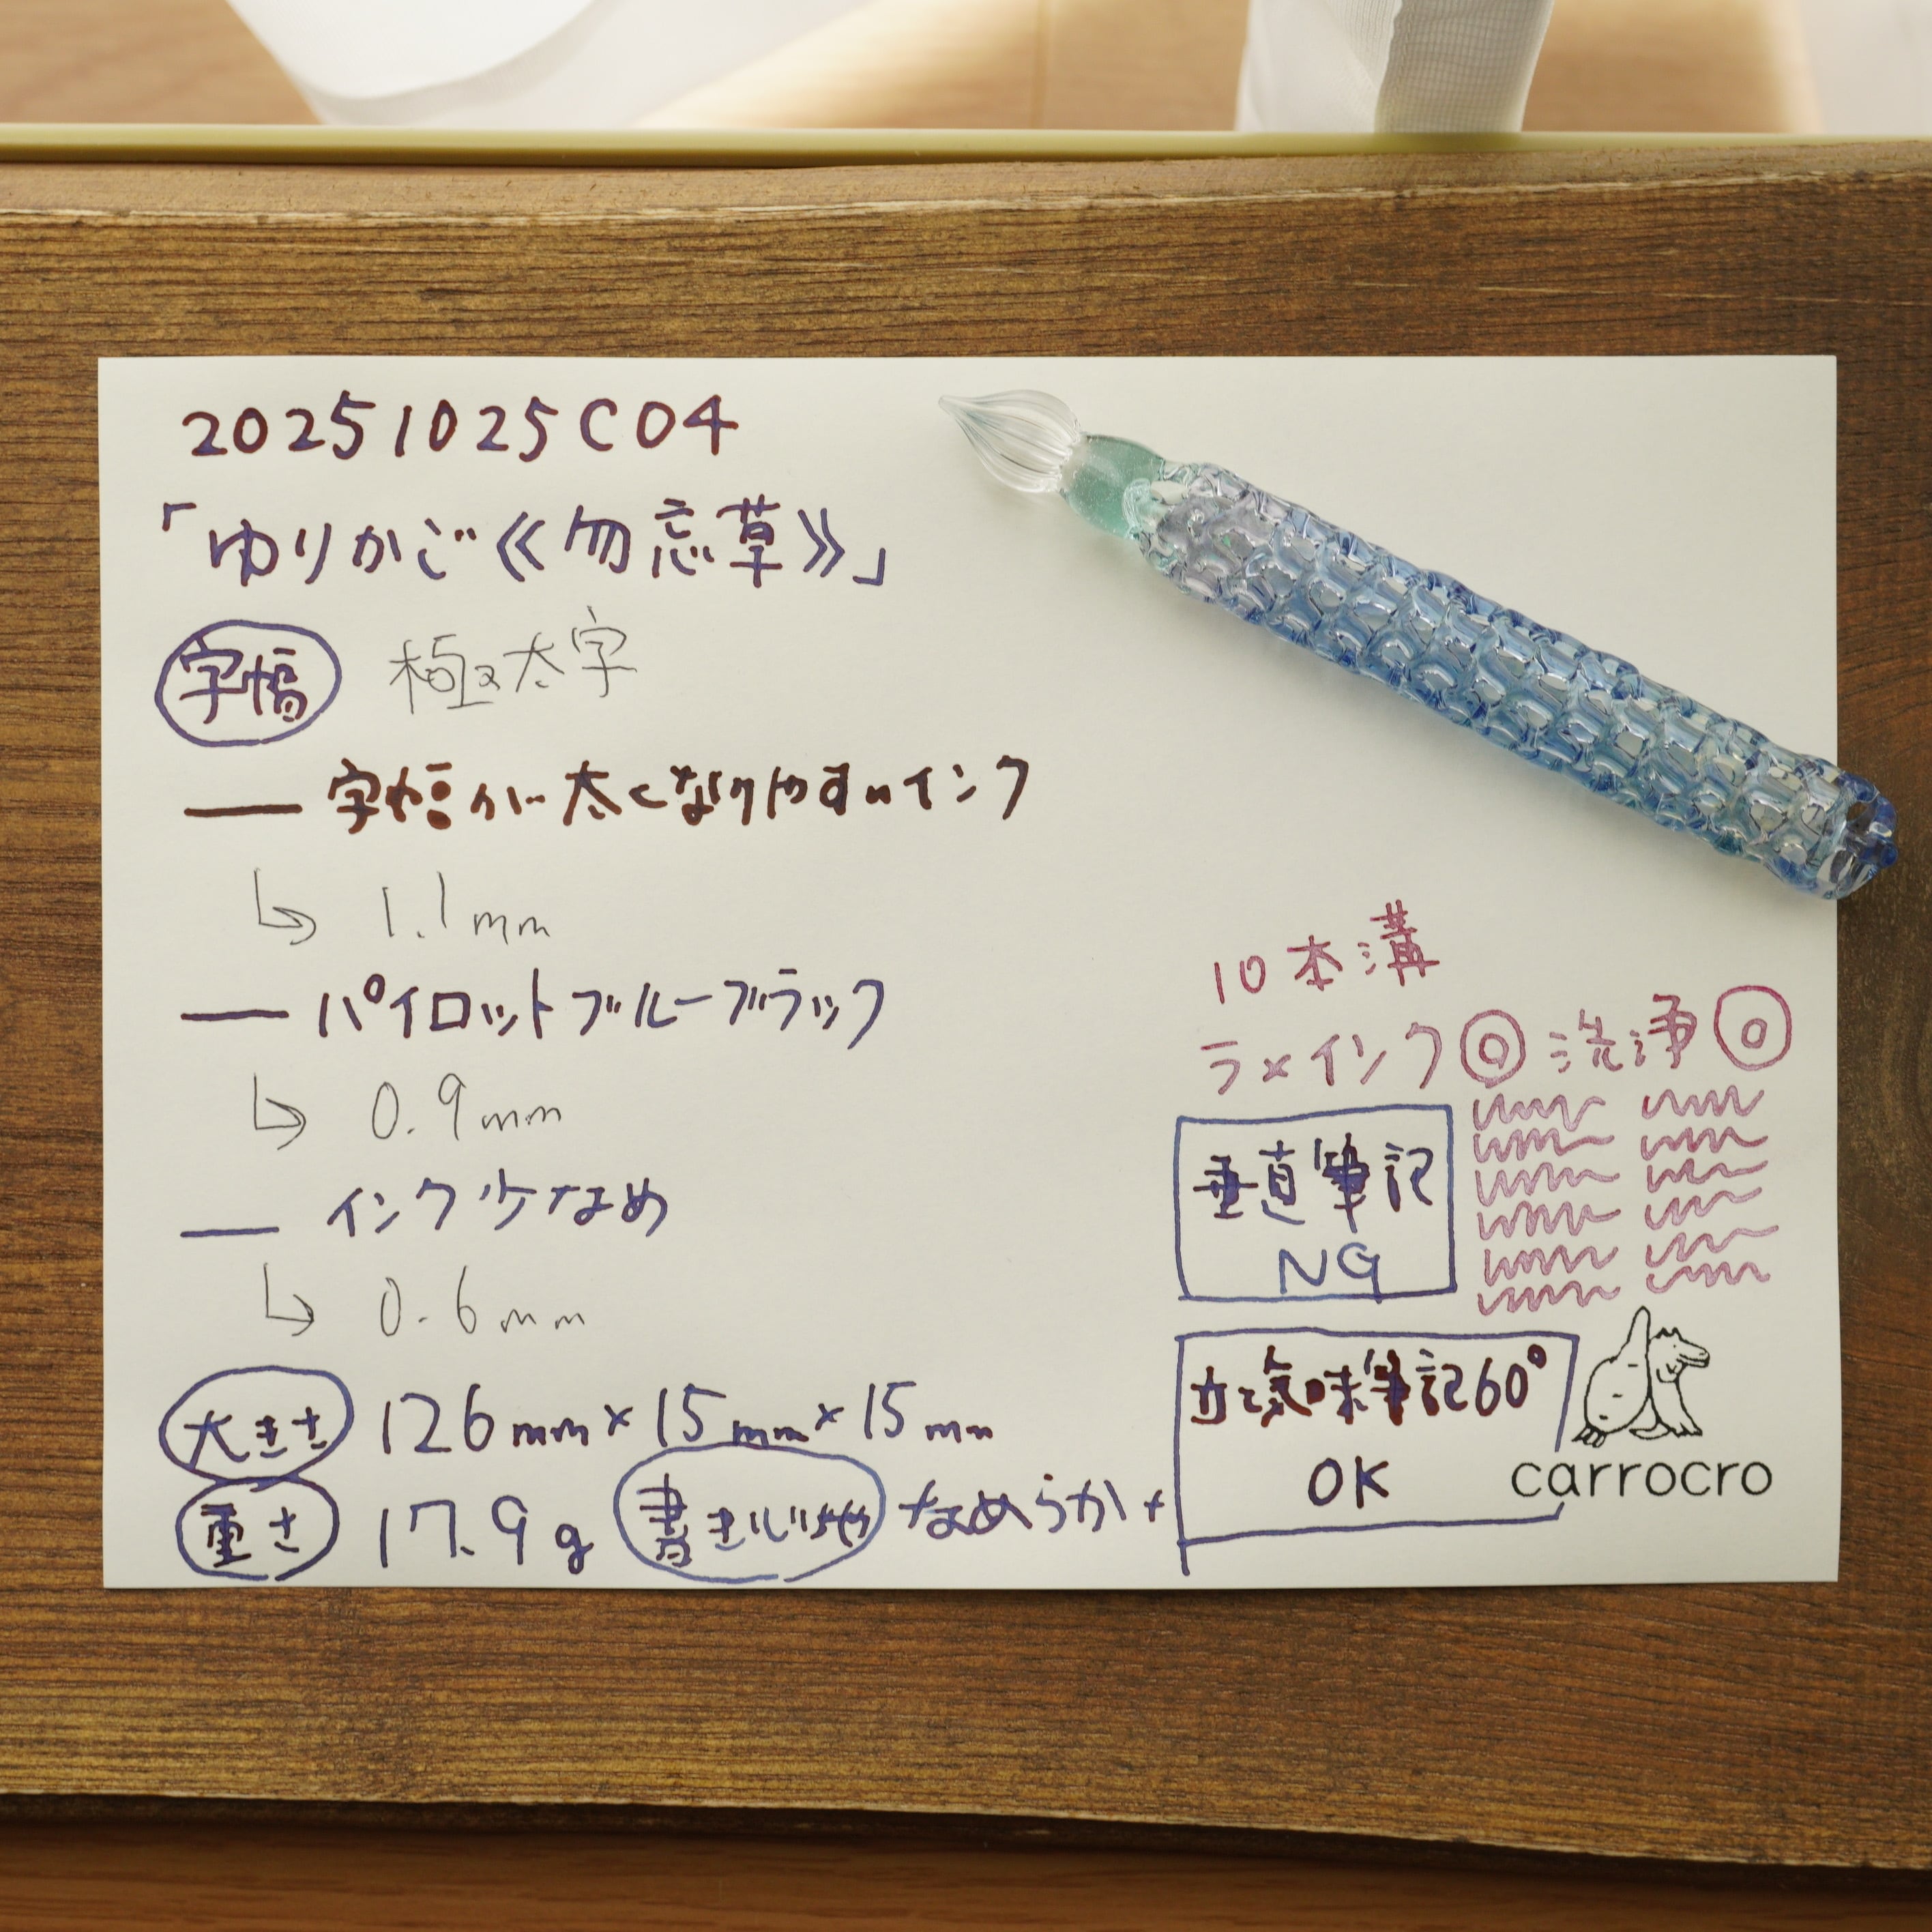 20251025C04
「ゆりかご《勿忘草》」
字幅 極太字
字幅が太くなりやすいインク
1.1mm
パイロットブルーブラック
0.9mm
インク少なめ
0.6mm
大きさ 126mm×15mm×15mm
重さ 17.9g 書き心地 なめらか+
10本溝
ラメインク◎洗浄◎
垂直筆記
NG
立て気味筆記60°
OK
carrocro